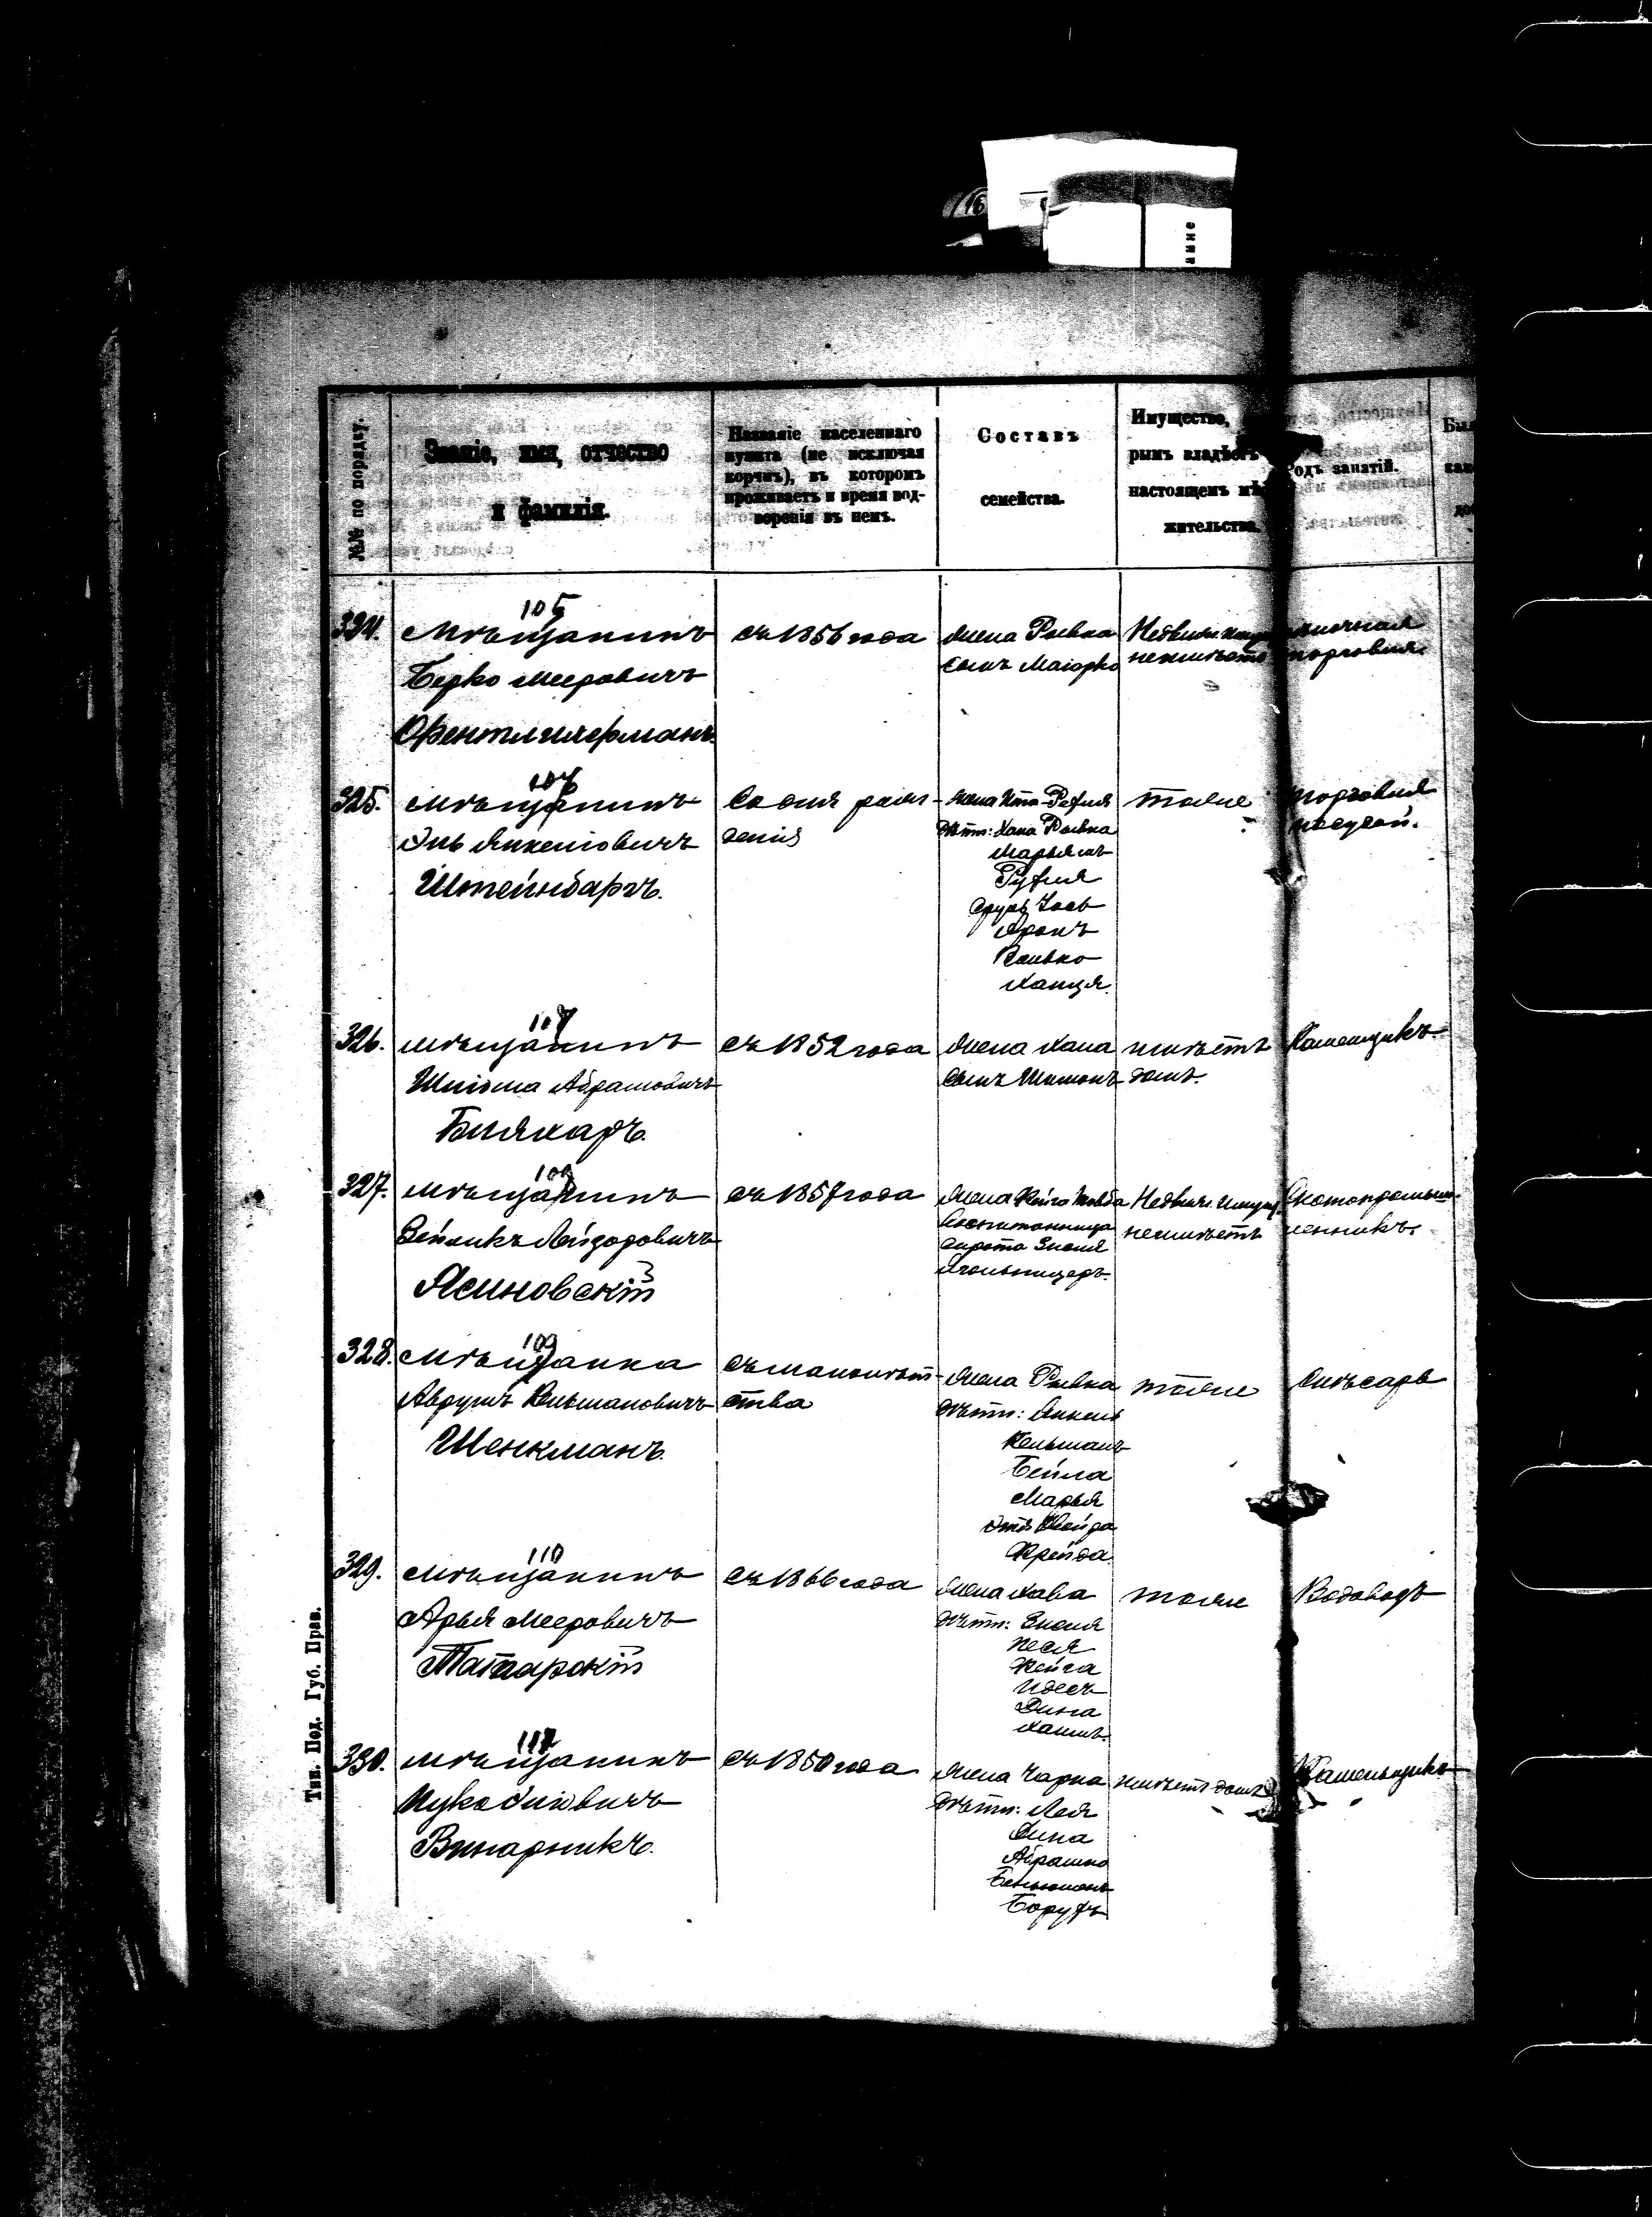 №№ по порядку.
Званіе, имя, отчество
и фамилія.
Названіе населеннаго
пункта (не исключая
корчмъ), въ которомъ
проживаетъ и время вод-
воренія въ немъ.
Составъ
семейства.
Имущество,
рымъ владѣетъ
настоящемъ мѣ
жительства.
Родъ занятій.
324.
105
Мѣщанинъ
Берко Мееровичъ
Орентлихерманъ
съ 1856 года
жена Ривка
сынъ Маіорко
Недвиж. имущ.
неимѣетъ
торговля
325.
Мѣщанинъ
Янкеліовичъ
Штейнбаргъ.
Со дня рож-
денія
жена Ита-Рухля
дѣти: Хана Ривка
Марьямъ
Рухля
Аронъ
Волько
Ханця.
тоже
торговля
посудой.
326.
107
мѣщанинъ
Шліома Абрамовичъ
Блякаръ.
съ 1852 года
жена Хана
сынъ Шимонъ
имѣетъ
домъ.
Каменщикъ.
327.
мѣщанинъ
Зейликъ Лейзоровичъ
Ясиновскій
съ 1857 года
жена Фейга
воспитанница
сирота Знеля
Недвиж. имущ.
неимѣетъ
Скотопромыш-
ленникъ.
328.
109
Мѣщанка
Аврумъ Кельмановичъ
Шенкманъ.
съ малолѣт-
ства
жена Ривка
дѣти: Янкель
Кельманъ
Бейла
Марья
Фрейда
тоже
Слѣсарь
329.
110
Мѣщанинъ
Арья Мееровичъ
Татарскій
съ 1866 года
жена Хава
дѣти: Знеля
Песя
Фейга
Идесъ
Дина
Хаимъ.
тоже
Водовозъ
330.
111
мѣщанинъ
Винарникъ.
съ 1850 года
жена Чарна
дѣти: Лея
Дина
Абрамко
Беньюминъ
Борухъ
имѣетъ домъ
Каменьщикъ
Тип. Под. Губ. Прав.